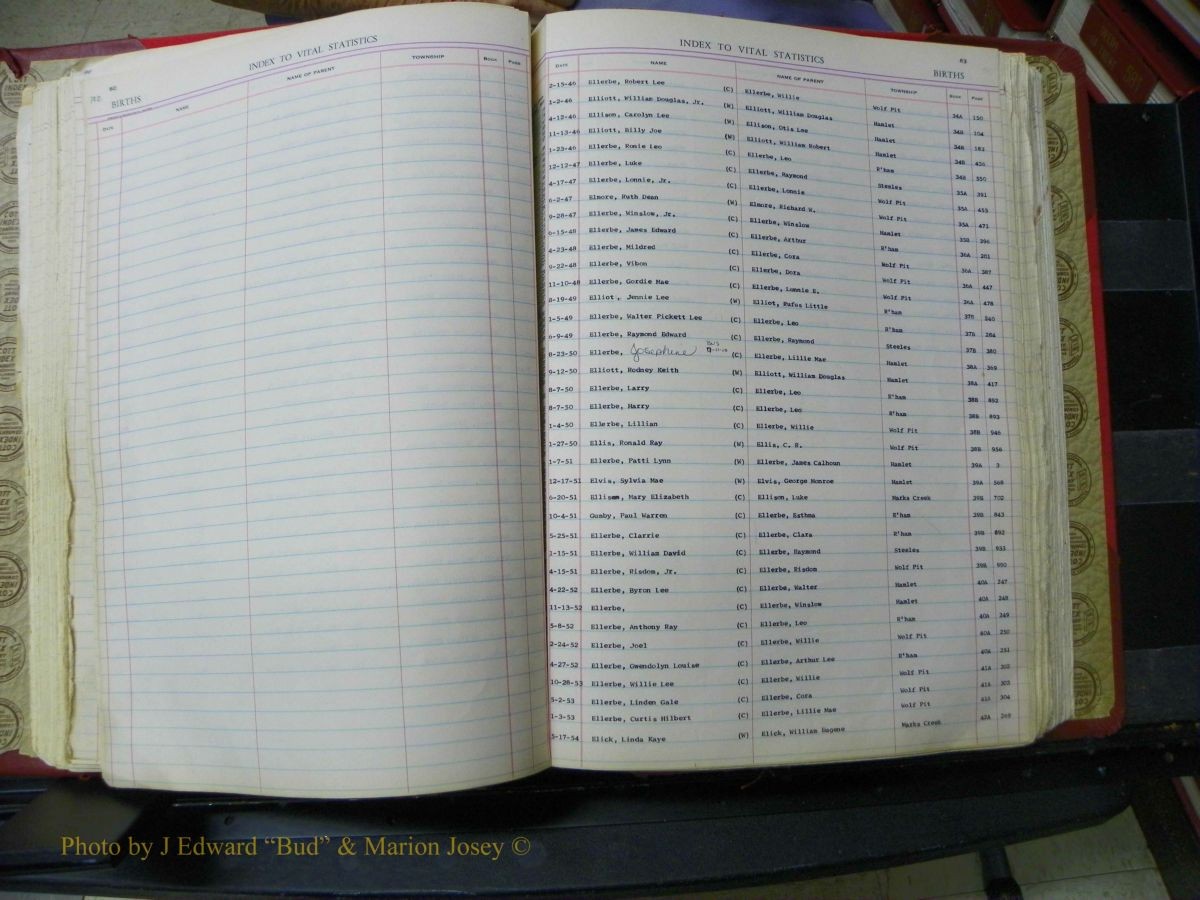 INDEX TO VITAL STATISTICS
BIRTHS
DATE NAME NAME OF PARENT TOWNSHIP BOOK PAGE
INDEX TO VITAL STATISTICS 83
BIRTHS
DATE NAME NAME OF PARENT TOWNSHIP BOOK PAGE
2-15-46 Ellerbe, Robert Lee (C) Ellerbe, Willie Wolf Pit 34A 150
1-2-46 Elliott, William Douglas, Jr. (W) Elliott, William Douglas Hamlet 34B 104
4-12-46 Ellison, Carolyn Lee (W) Ellison, Otis Lee Hamlet 34B 182
11-13-46 Elliott, Billy Joe (W) Elliott, William Robert Hamlet 34B 436
1-23-46 Ellerbe, Ronie Leo (C) Ellerbe, Leo R'ham 34B 550
12-12-47 Ellerbe, Luke (C) Ellerbe, Raymond Steeles 35A 391
4-17-47 Ellerbe, Lonnie, Jr. (C) Ellerbe, Lonnie Wolf Pit 35A 455
6-2-47 Elmore, Ruth Dean (W) Elmore, Richard W. Wolf Pit 35A 471
9-28-47 Ellerbe, Winslow, Jr. (C) Ellerbe, Winslow Hamlet 35B 296
6-15-48 Ellerbe, James Edward (C) Ellerbe, Arthur R'ham 36A 261
4-23-48 Ellerbe, Mildred (C) Ellerbe, Cora Wolf Pit 36A 387
9-22-48 Ellerbe, Vibon (C) Ellerbe, Dora Wolf Pit 36A 447
11-10-48 Ellerbe, Gordie Mae (C) Ellerbe, Lonnie E. Wolf Pit 36A 478
8-19-49 Elliot, Jennie Lee (W) Elliot, Rufus Little R'ham 37B 240
1-5-49 Ellerbe, Walter Pickett Lee (C) Ellerbe, Leo R'ham 37B 264
6-9-49 Ellerbe, Raymond Edward (C) Ellerbe, Raymond Steeles 37B 380
8-23-50 Ellerbe, Josephine (C) Ellerbe, Lillie Mae Hamlet 38A 369
9-12-50 Elliott, Rodney Keith (W) Elliott, William Douglas Hamlet 38A 417
8-7-50 Ellerbe, Larry (C) Ellerbe, Leo R'ham 38B 892
8-7-50 Ellerbe, Harry (C) Ellerbe, Leo R'ham 38B 893
1-4-50 Ellerbe, Lillian (C) Ellerbe, Willie Wolf Pit 38B 946
1-27-50 Ellis, Ronald Ray (W) Ellis, C. R. Wolf Pit 38B 956
1-7-51 Ellerbe, Patti Lynn (W) Ellerbe, James Calhoun Hamlet 39A 3
12-17-51 Elvis, Sylvia Mae (W) Elvis, George Monroe Hamlet 39A 568
6-20-51 Ellison, Mary Elizabeth (C) Ellison, Luke Marks Creek 39B 702
10-4-51 Gumby, Paul Warren (C) Ellerbe, Esthma R'ham 39B 843
5-25-51 Ellerbe, Clarrie (C) Ellerbe, Clara R'ham 39B 892
1-15-51 Ellerbe, William David (C) Ellerbe, Raymond Steeles 39B 933
4-15-51 Ellerbe, Risdom, Jr. (C) Ellerbe, Risdom Wolf Pit 39B 990
4-22-52 Ellerbe, Byron Lee (C) Ellerbe, Walter Hamlet 40A 247
11-13-52 Ellerbe, (C) Ellerbe, Winslow Hamlet 40A 248
5-8-52 Ellerbe, Anthony Ray (C) Ellerbe, Leo R'ham 40A 249
2-24-52 Ellerbe, Joel (C) Ellerbe, Willie Wolf Pit 40A 250
4-27-52 Ellerbe, Gwendolyn Louise (C) Ellerbe, Arthur Lee R'ham 40A 251
10-28-53 Ellerbe, Willie Lee (C) Ellerbe, Willie Wolf Pit 41A 302
5-2-53 Ellerbe, Linden Gale (C) Ellerbe, Cora Wolf Pit 41A 303
1-3-53 Ellerbe, Curtis Hilbert (C) Ellerbe, Lillie Mae Wolf Pit 41A 304
5-17-54 Elick, Linda Kaye (W) Elick, William Eugene Marks Creek 42A 269
Photo by J Edward “Bud” & Marion Josey ©